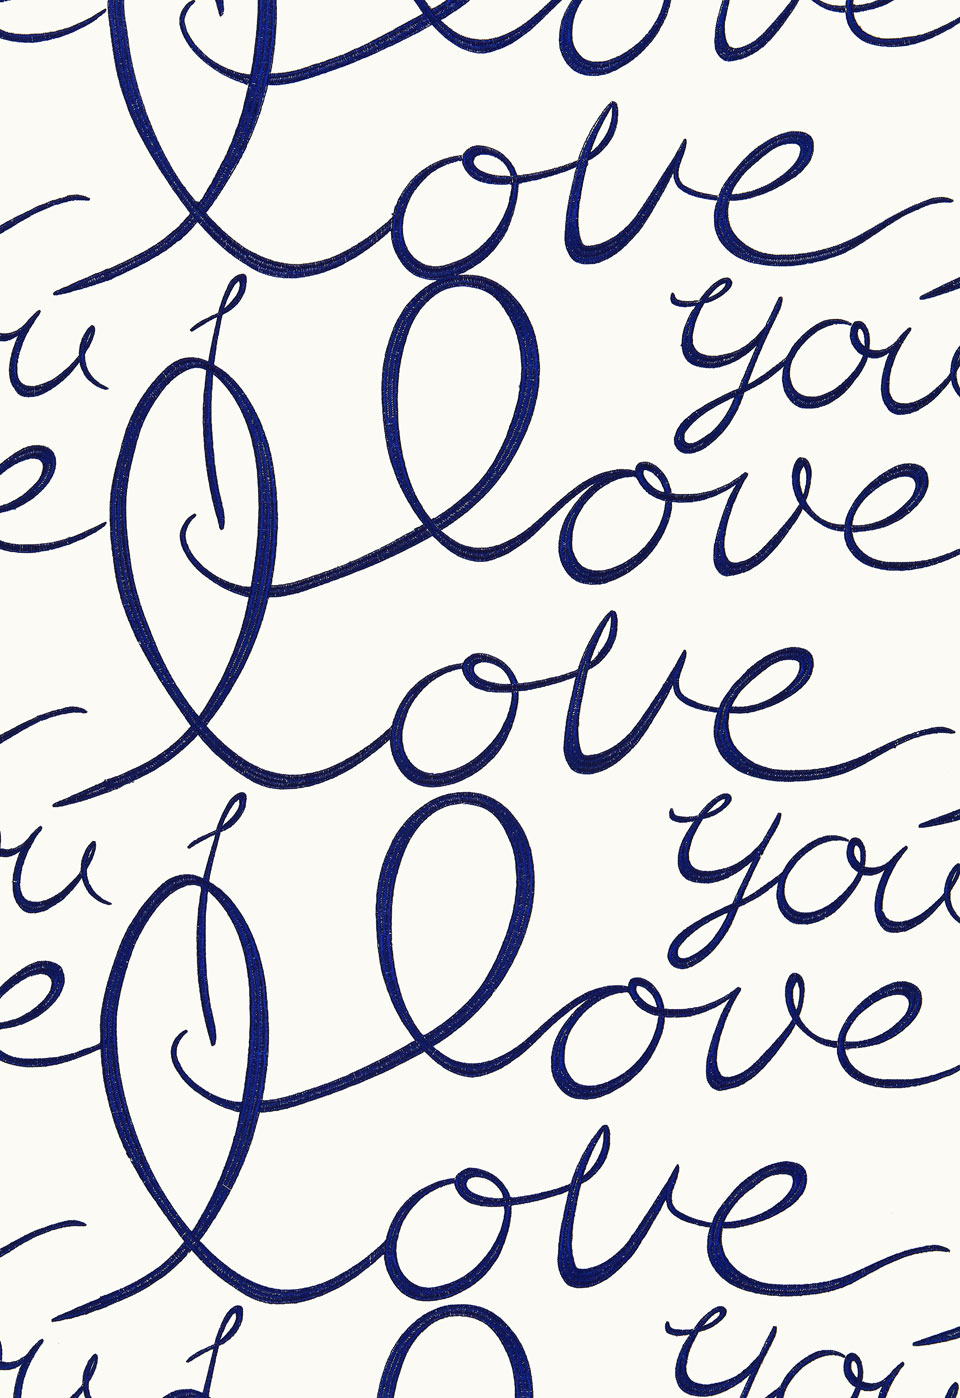 love
love
u I you
e love
love
u I you
e love
love
ou I you